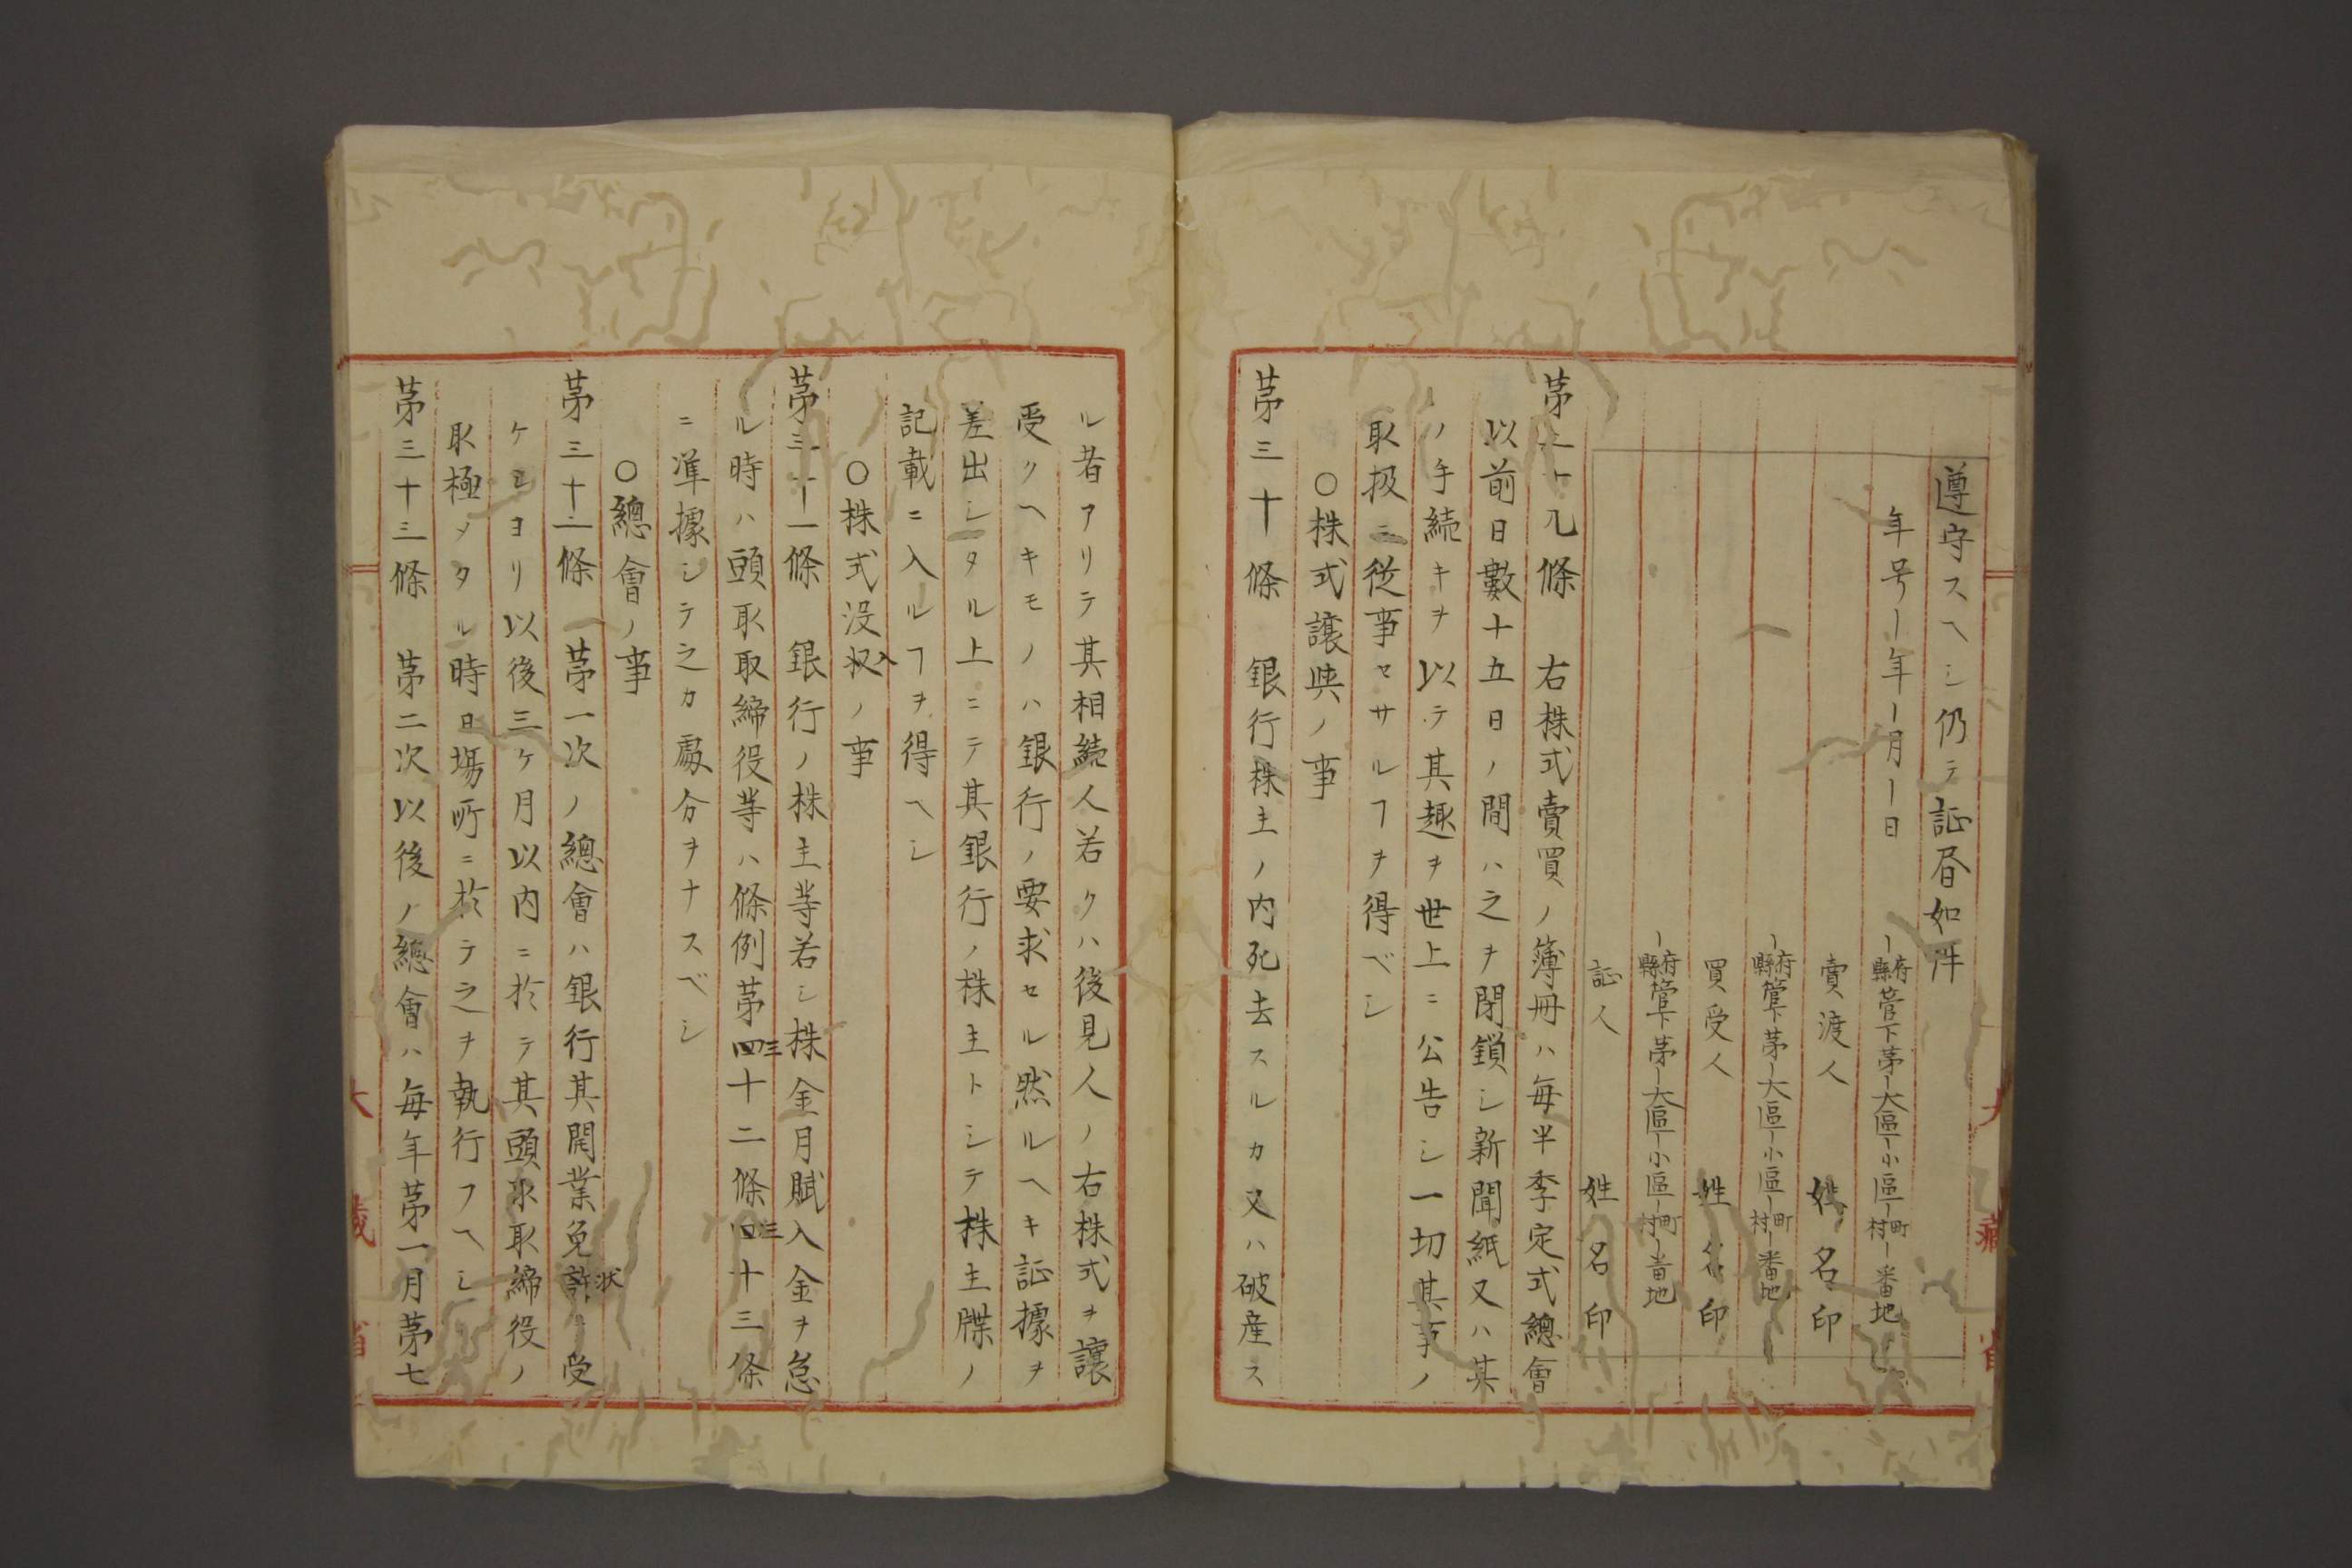 遵守スヘシ仍テ証書如件
年号ー年ー月ー日
ー府縣管下第ー大區ー小區ー町村ー番地
賣渡人 姓名印
ー府縣管下第ー大區ー小區ー町村ー番地
買受人 姓名印
ー府縣管下第ー大區ー小區ー町村ー番地
証人 姓名印
第二十九條 右株式賣買ノ簿冊ハ毎半季定式總會
以前日數十五日ノ間ハ之ヲ閉鎖シ新聞紙又ハ其
ノ手続キヲ以テ其趣ヲ世上ニ公告シ一切其事ノ
取扱ニ從事セサルヿヲ得ベシ
○株式譲與ノ事
第三十條 銀行株主ノ内死去スルカ又ハ破産ス
ル者アリテ其相続人若クハ後見人ノ右株式ヲ譲
受クヘキモノハ銀行ノ要求セル然ルヘキ証據ヲ
差出シタル上ニテ其銀行ノ株主トシテ株主牒ノ
記載ニ入ルヿヲ得ヘシ
○株式没収入ノ事
第三十一條 銀行ノ株主等若シ株金月賦入金ヲ怠
ル時ハ頭取取締役等ハ條例第四三十二條四三十三條
ニ准據シテ之カ處分ヲナスベシ
○總會ノ事
第三十二條 第一次ノ總會ハ銀行其開業免許状ヲ受
ケシヨリ以後三ケ月以内ニ於テ其頭取取締役ノ
取極メタル時日場所ニ於テ之ヲ執行フヘシ
第三十三條 第二次以後ノ總會ハ毎年第一月第七
大蔵省
大藏省